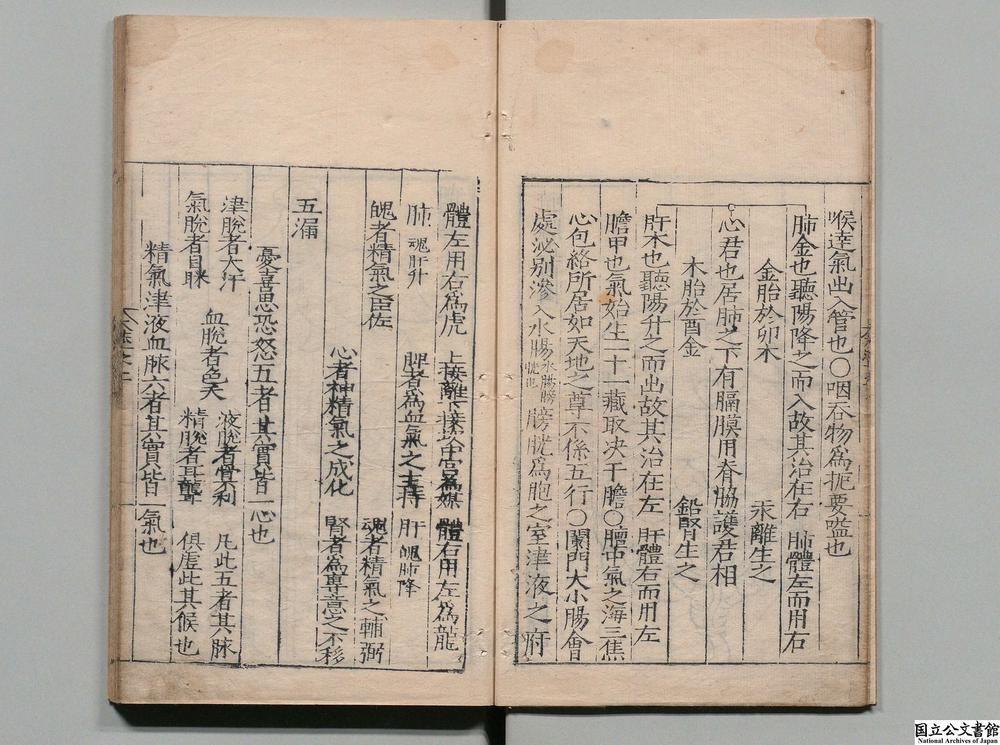 喉達氣出入管也〇咽吞物爲扼要嗌也
肺金也聽陽降之而入故其治在右 肺體左而用右
金胎於卯木 汞離生之
心君也居肺之下有膈膜用脊脇護君相
木胎於酉金 鉛腎生之
肝木也聽陽升之而出故其治在左 肝體右而用左
膽甲也氣始生一十一藏取决于膽〇膻中氣之海三焦
心包絡所居如天地之尊不係五行〇闌門大小腸會
處泌別滲入水腸 膀胱爲胞之室津液之府
體左用右爲虎 上接離下接坎中宮爲媒 體右用左爲龍
肺 魂肝升 脾者爲血氣之主持 肝 魄肺降
魄者精氣之臣佐 魂者精氣之輔弼
心者神精氣之成化 腎者爲專意之不移
五漏
憂喜思恐怒五者其實皆一心也
津脫者大汗 液脫者骨不利 凡此五者其脉
氣脫者目眯 血脫者色夭 精脫者耳聾 俱虛此其候也
精氣津液血脉六者其實皆一氣也
国立公文書館
National Archives of Japan